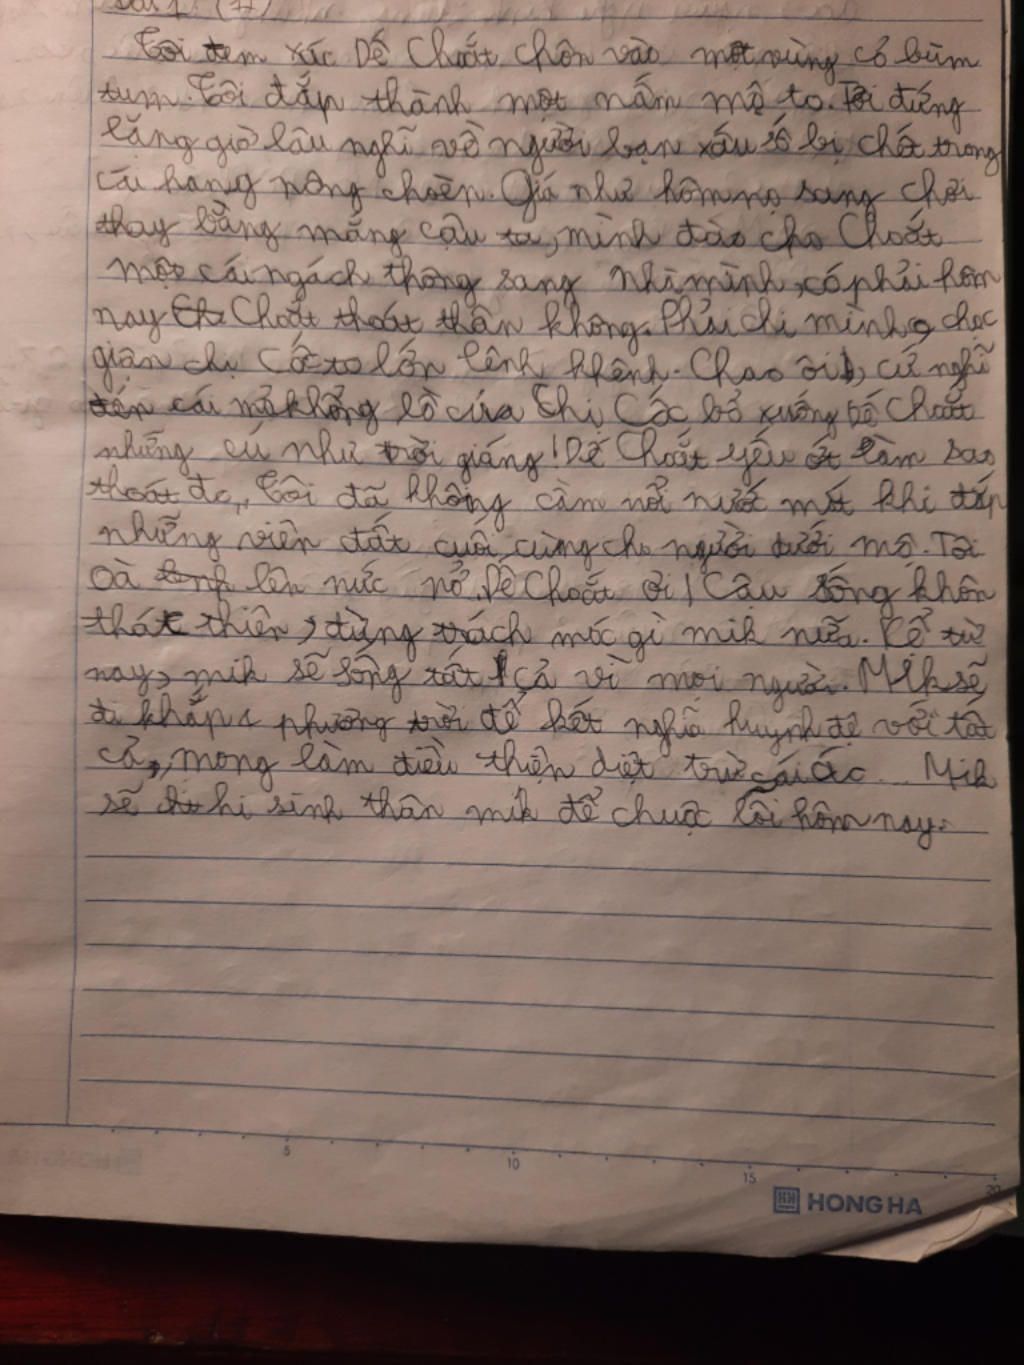 Bài 1 (77)
Tôi đem xác Dế Choắt chôn vào một vùng cỏ bùm
tum. Tôi đắp thành một nấm mộ to. Tôi đứng
lặng giờ lâu nghĩ về người bạn xấu số bị chết trong
cái hang nông choèn. Giá như hôm nọ sang chơi
thay bằng mắng cậu ta, mình đào cho Choắt
một cái ngách thông sang nhà mình, có phải hôm
nay Choắt thoát thân không. Phải chi mình chọc
giận chị Cốc to lớn lênh khênh. Chao ôi, cứ nghĩ
đến cái mỏ khổng lồ của Chị Cốc bổ xuống Dế Choắt
những cú như trời giáng! Dế Choắt yếu ớt làm sao
thoát đc,, Tôi đã không cầm nổi nước mắt khi đắp
những viên đất cuối cùng cho người dưới mộ. Tôi
oà lên nức nở. Dế Choắt ơi! Cậu sống khôn
thác thiên, đừng trách móc gì mik nữa. Kể từ
nay, mik sẽ sống tất cả vì mọi người. Mik sẽ
đi khắp 4 phương trời để kết nghĩa huynh đệ với tất
cả, mong làm điều thiện diệt trừ cái ác... Mik
sẽ hi sinh thân mik để chuộc lỗi hôm nay.
5 10 15 20
HONG HA